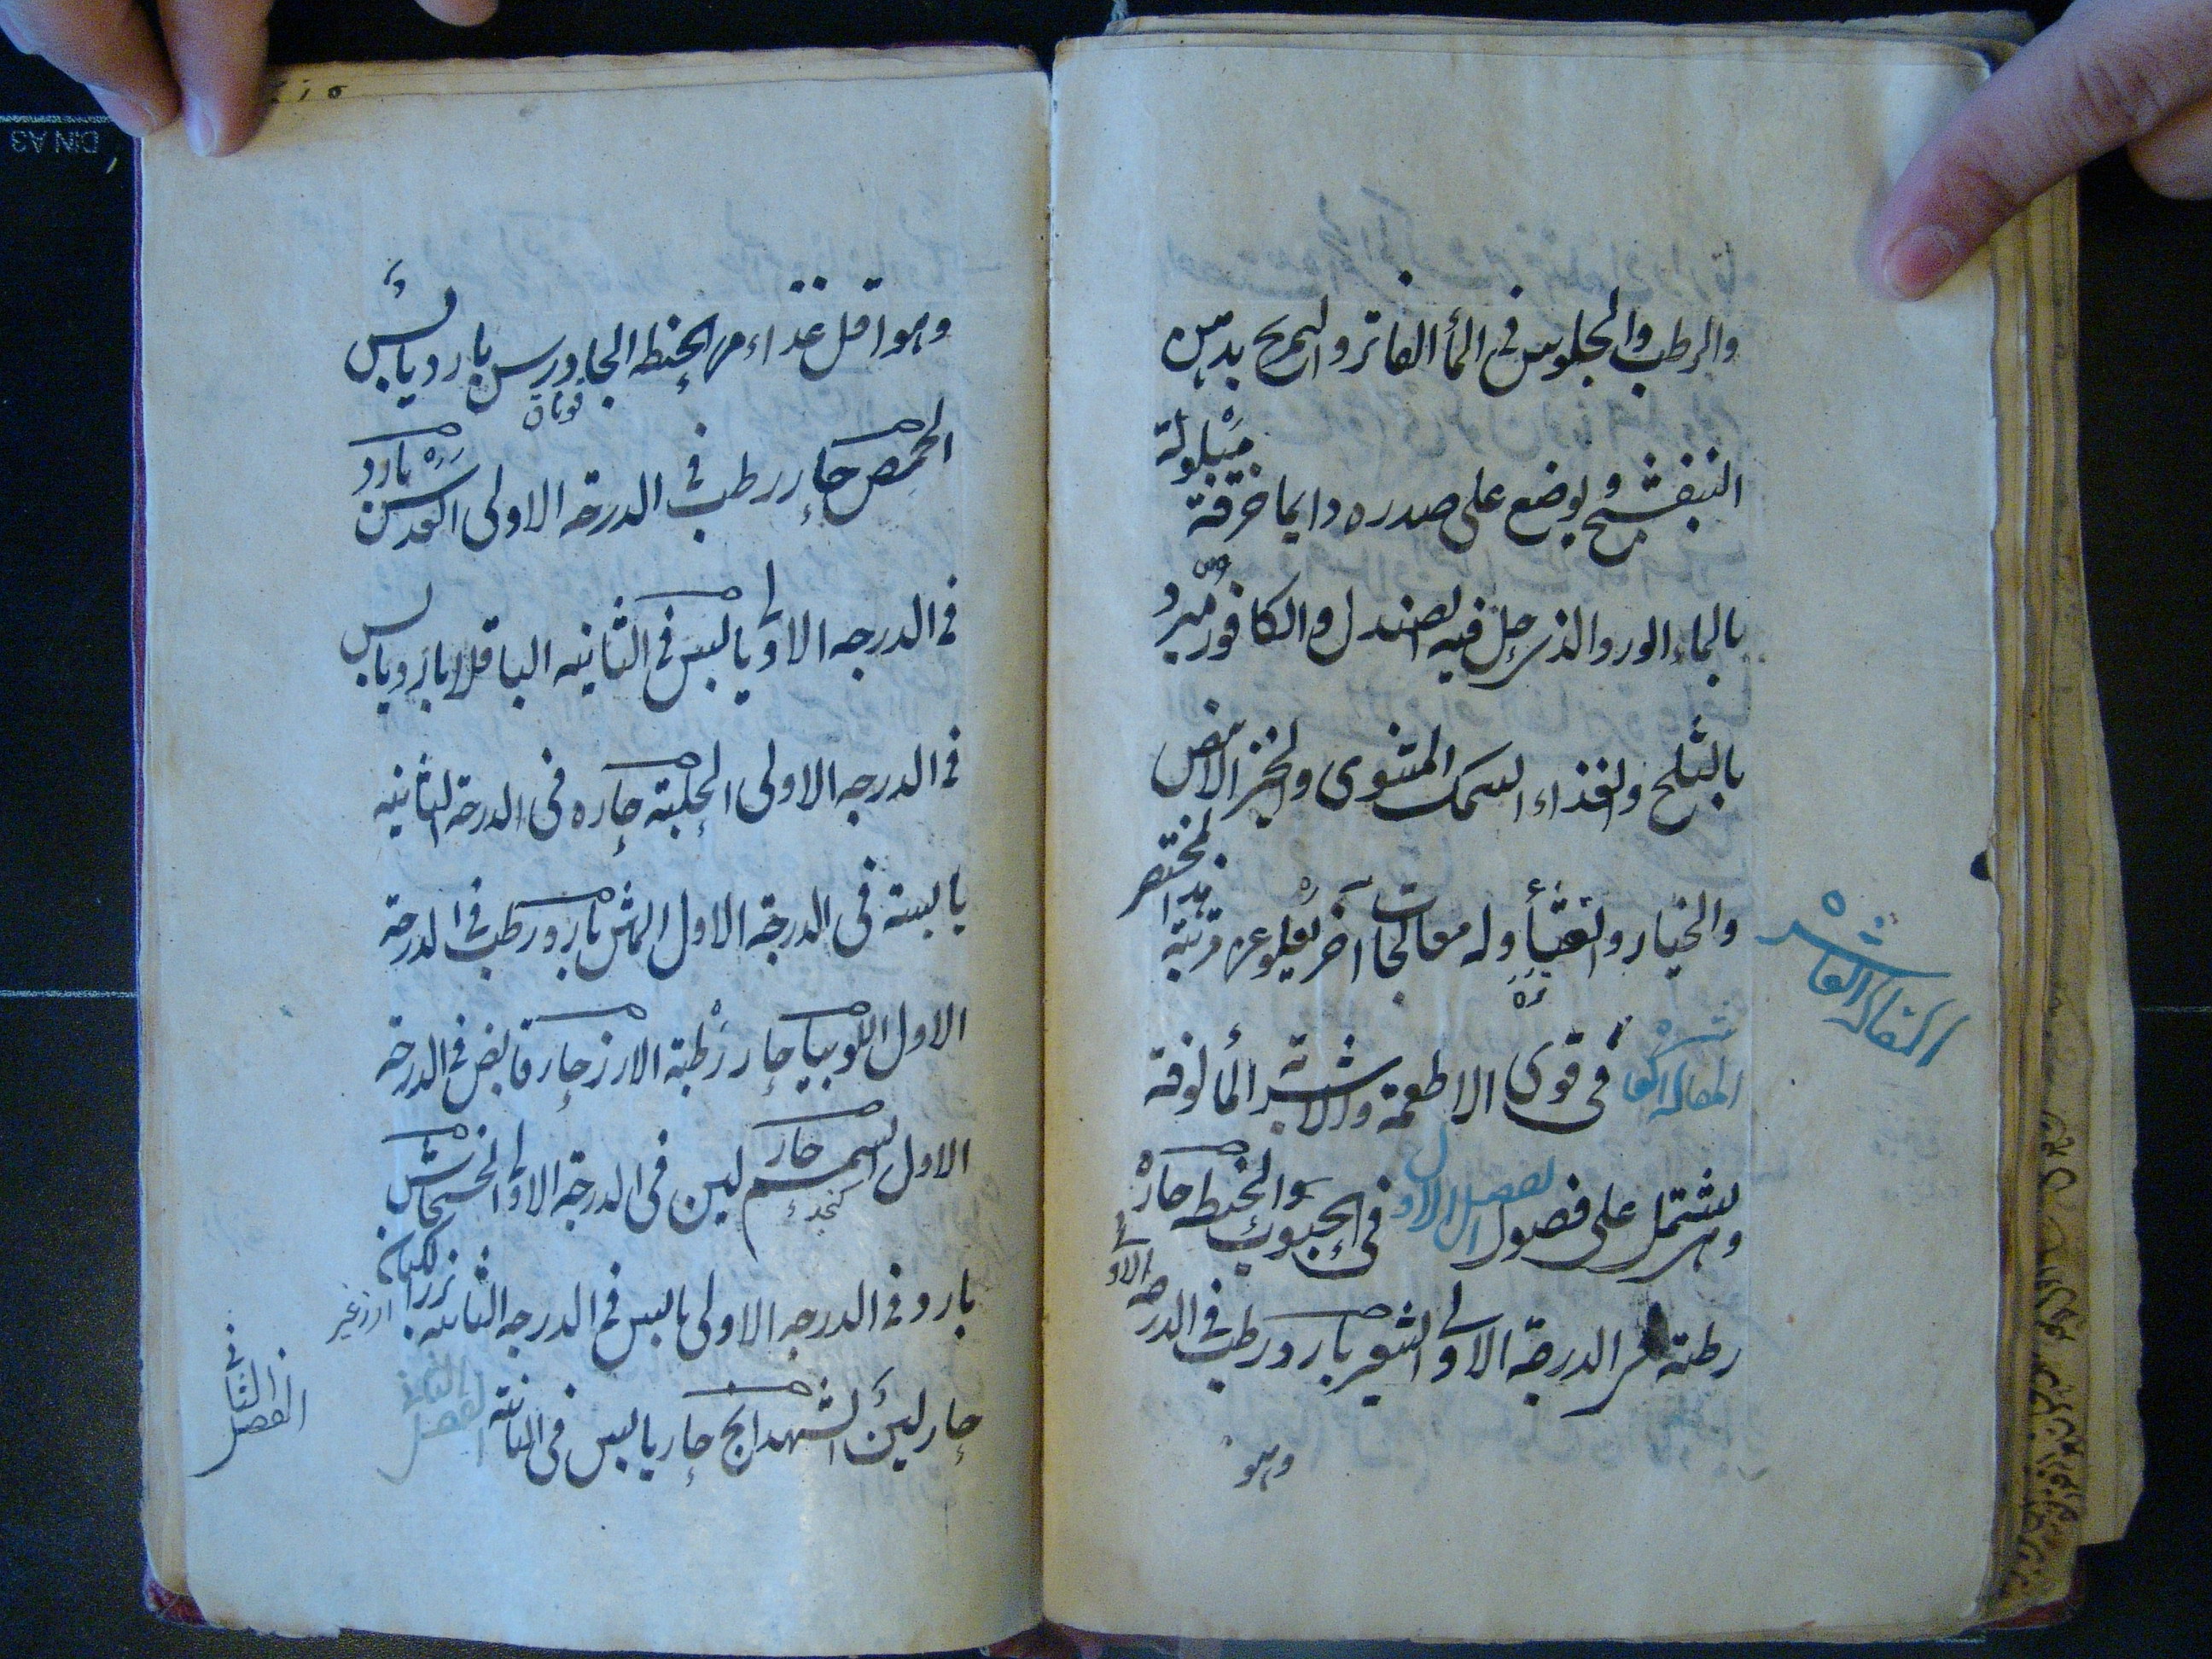 والرطب والجلوس فى المأ الفاتر والتمريخ بدهن
البنفشج و يوضع على صدره دايما خرقة مبلولة
بالماء الورد والذى حل فيه الصندل والكافور مبرد
بالثلج والغذاء السمك المشوى والخبز الابيض
والخيار والقثأ وله معالجات آخر يعلو عن مرتبة هذا المختصر
المقالة العاشرة
المقالة العاشرة فى قوى الاطعمة والاشربة المألوفة
وهى يشتمل على فصول الفصل الاول فى الحبوب الحنطه حارة
رطبة فى الدرجة الاولى الشعير بارد رطب فى الدرجه الاولى
وهو
وهو اقل غذاء من الحنطه الجاورس بارد يابس
الحمص حار رطب فى الدرجة الاولى العدس بارد
فى الدرجه الاولى يابس فى الثانيه الباقلا بارد يابس
فى الدرجه الاولى الحلبة حاره فى الدرجة الثانيه
يابسة فى الدرجة الاول الماش بارد رطب فى الدرجة
الاول اللوبيا حار رطبة الارز حار قابض فى الدرجة
الاول السمسم حار لين فى الدرجة الاولى الخشخاش
كنجد
بارد فى الدرجه الاولى يابس فى الدرجه الثانيه بزر الكتان
حار لين الشهدانج حار يابس فى الثانية الفصل الثانى
الفصل الثانى فى